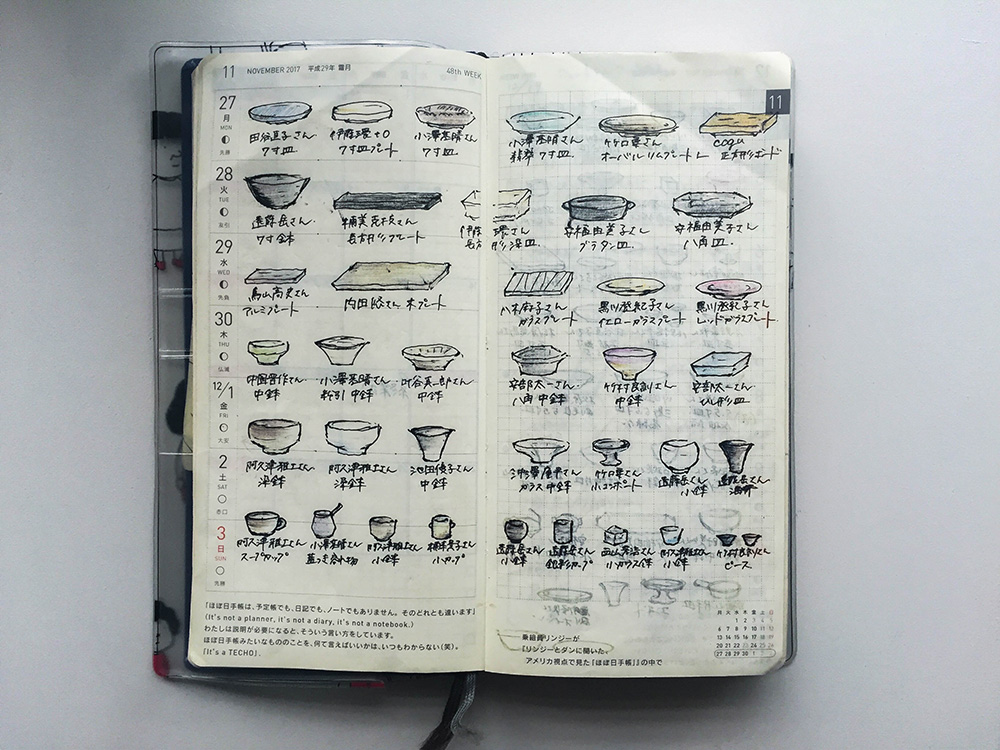 11 NOVEMBER 2017 平成29年 霜月 48th WEEK
11
27
月
MON
先勝
田谷直子さん
7寸皿
伊藤環 ±0
7寸皿プレート
小澤基晴さん
7寸皿
小澤基晴さん
翡翠 7寸皿
ケケロ要さん
オーバルリムプレート L
coqu
正方形ボード
28
火
TUE
友引
遠藤岳さん
7寸鉢
長方形プレート
伊藤環さん
長方形深皿
安福由美子さん
グラタン皿
安福由美子さん
八角皿
29
水
WED
先負
鳥山高史さん
アルミプレート
内田悠さん 木プレート
八木麻子さん
ガラスプレート
黒川登紀子さん
イエローガラスプレート
黒川登紀子さん
レッドガラスプレート
30
木
THU
仏滅
中園晋作さん
中鉢
小澤基晴さん
粉引 中鉢
叶谷真一郎さん
中鉢
安部太一さん
八角 中鉢
竹村良訓さん
中鉢
安部太一さん
ひし形皿
12/1
金
FRI
大安
阿久津雅土さん
深鉢
阿久津雅土さん
深鉢
池田優子さん
中鉢
2
土
SAT
赤口
ガラス中鉢
小コンポート
遠藤岳さん
小鉢
遠藤岳さん
酒器
3
日
SUN
先勝
阿久津雅土さん
スープカップ
小澤基晴さん
蓋つき容れ物
阿久津雅土さん
小鉢
小カップ
遠藤岳さん
小鉢
遠藤岳さん
銀彩カップ
小ガラス体
阿久津雅土さん
小鉢
竹村良訓さん
ピース
「ほぼ日手帳は、予定帳でも、日記でも、ノートでもありません。そのどれとも違います」
(It's not a planner, it's not a diary, it's not a notebook.)
わたしは説明が必要になると、そういう言い方をしています。
ほぼ日手帳みたいなもののことを、何て言えばいいかは、いつもわからない(笑)。
「It's a TECHO」。
乗組員リンジーが
『リンジーとダンに聞いた、
アメリカ視点で見た「ほぼ日手帳」』の中で
月 火 水 木 金 土 日
1 2 3 4 5
6 7 8 9 10 11 12
13 14 15 16 17 18 19
20 21 22 23 24 25 26
27 28 29 30 1 2 3